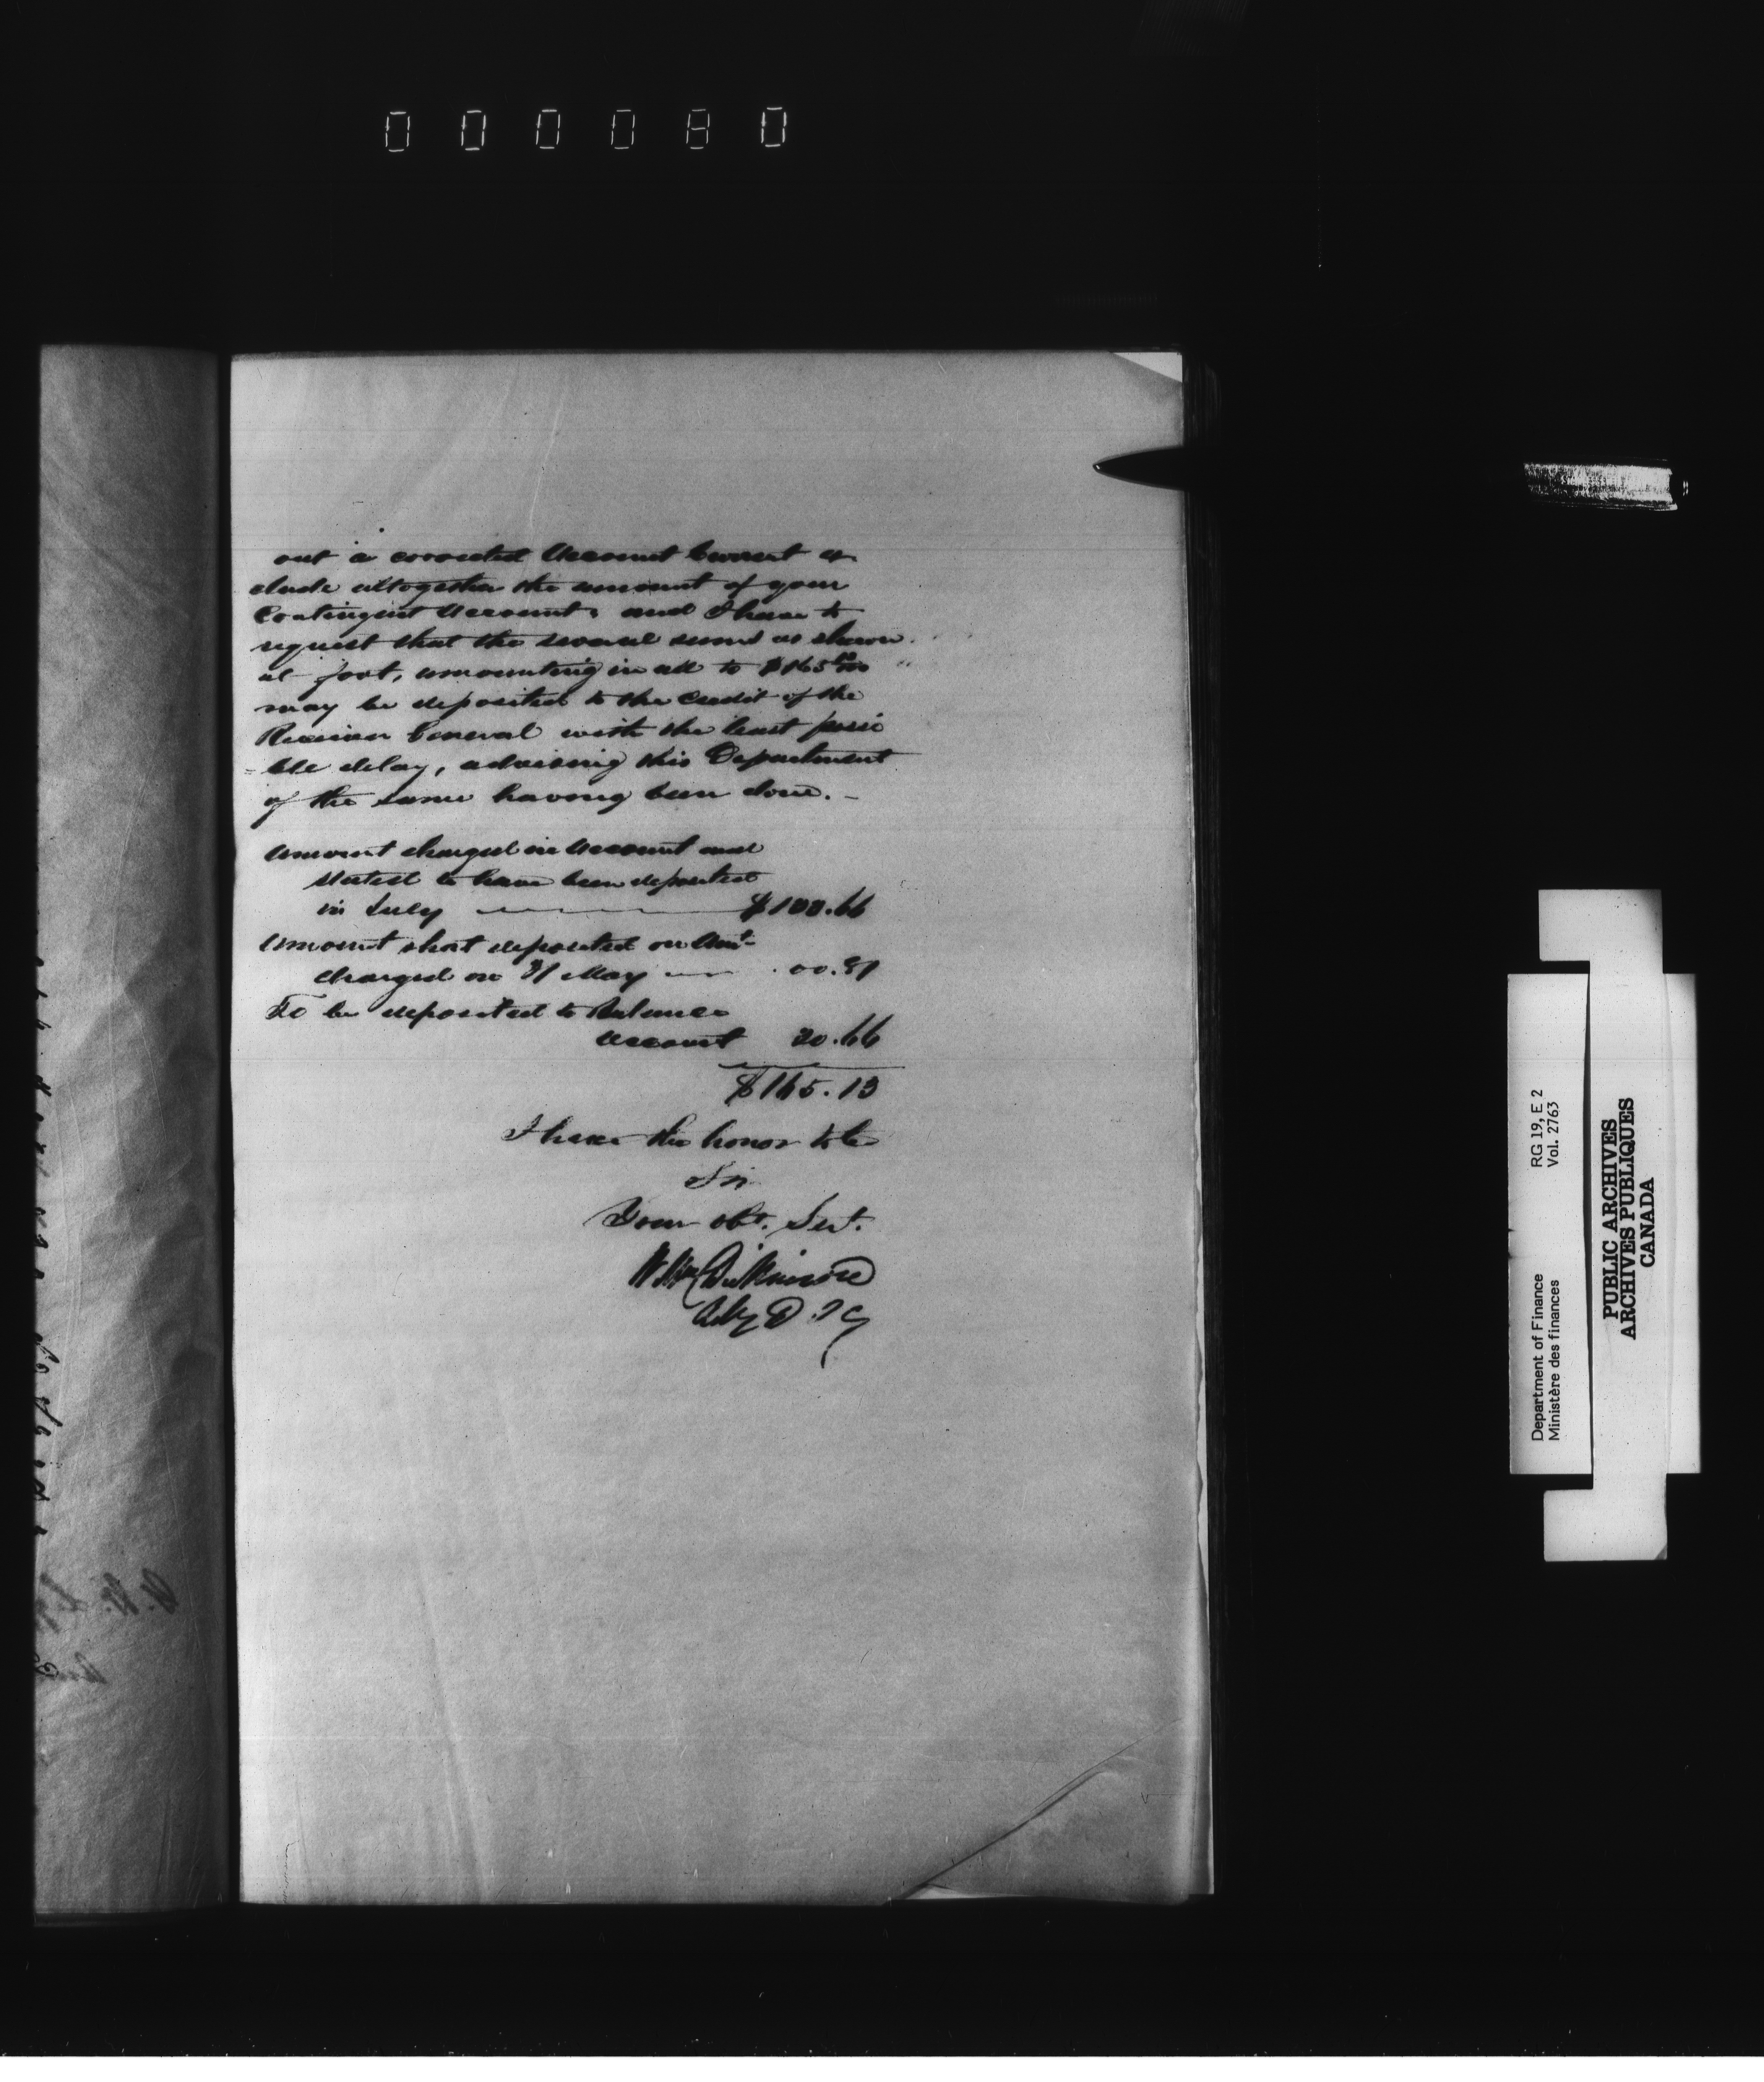 000080
out a corrected Account Current ex
clude altogether the amount of your
Contingent Account, and I have to
request that the several sums as shown
at foot, amounting in all to $165 13/100
may be deposited to the Credit of the
Receiver General with the least possi
=ble delay, advising this Department
of the same having been done. –
Amount charged in Account and
stated to have been deposited
in July $100.66
Amount short deposited on Amt
charged on 31 May 00.81
To be deposited to Balance
Account 20.66
$165.13
I have the honor to be
Sir
Your obt. Servt.
Dickinson
RG 19, E 2
Vol. 2763
Department of Finance
Ministère des finances
PUBLIC ARCHIVES
ARCHIVES PUBLIQUES
CANADA